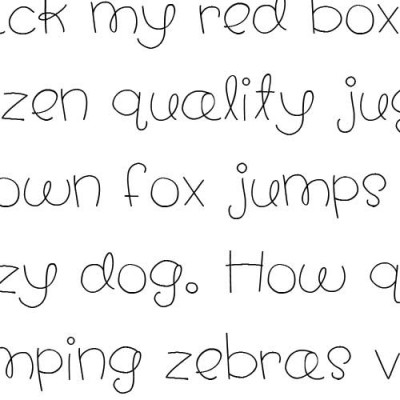 ck my red box
zen quality jug
own fox jumps
zy dog. How q
mping zebras v